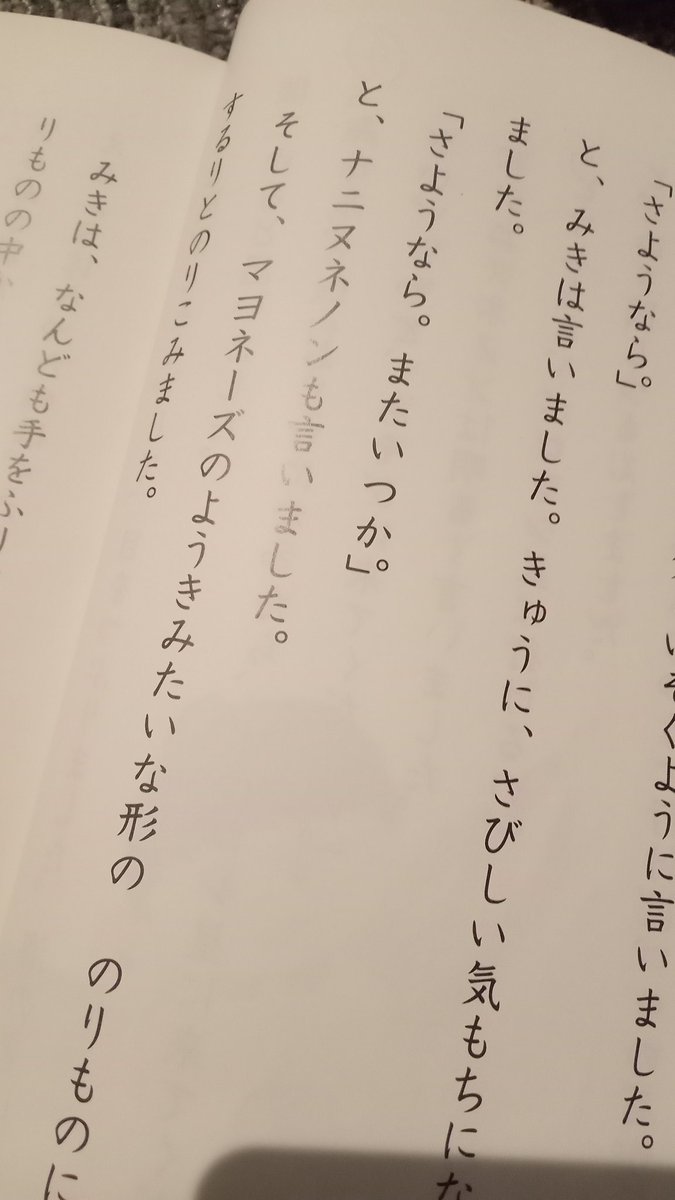 いそくように言いました。
「さようなら。」
と、みきは言いました。きゅうに、さびしい気もちにな
ました。
「さようなら。またいつか。」
と、ナニヌネノンも言いました。
そして、マヨネーズのようきみたいな形の のりものに
するりとのりこみました。
みきは、なんども手をふり
りものの中